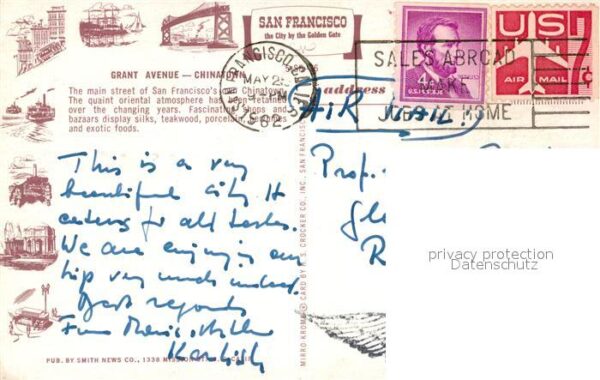 SAN FRANCISCO
the City by the Golden Gate
GRANT AVENUE — CHINATOWN
The main street of San Francisco's Chinatown.
The quaint oriental atmosphere has been retained
over the changing years. Fascinating shops and
bazaars display silks, teakwood, porcelain,
and exotic foods.
SAN FRANCISCO, CALIF.
MAY 2
PM
1962
SALES ABROAD
MAKE
JOBS AT HOME
4¢
U.S. POSTAGE
US
7¢
AIR MAIL
address
AIR MAIL
This is a very
beautiful city. It
caters for all tastes.
We are enjoying our
trip very much indeed.
Best regards
From
Prof.
Gl
R
privacy protection
Datenschutz
MIRRO-KROME ® CARD BY H. S. CROCKER CO., INC., SAN FRANCISCO
PUB. BY SMITH NEWS CO., 1338 MISSION ST., CALIF.